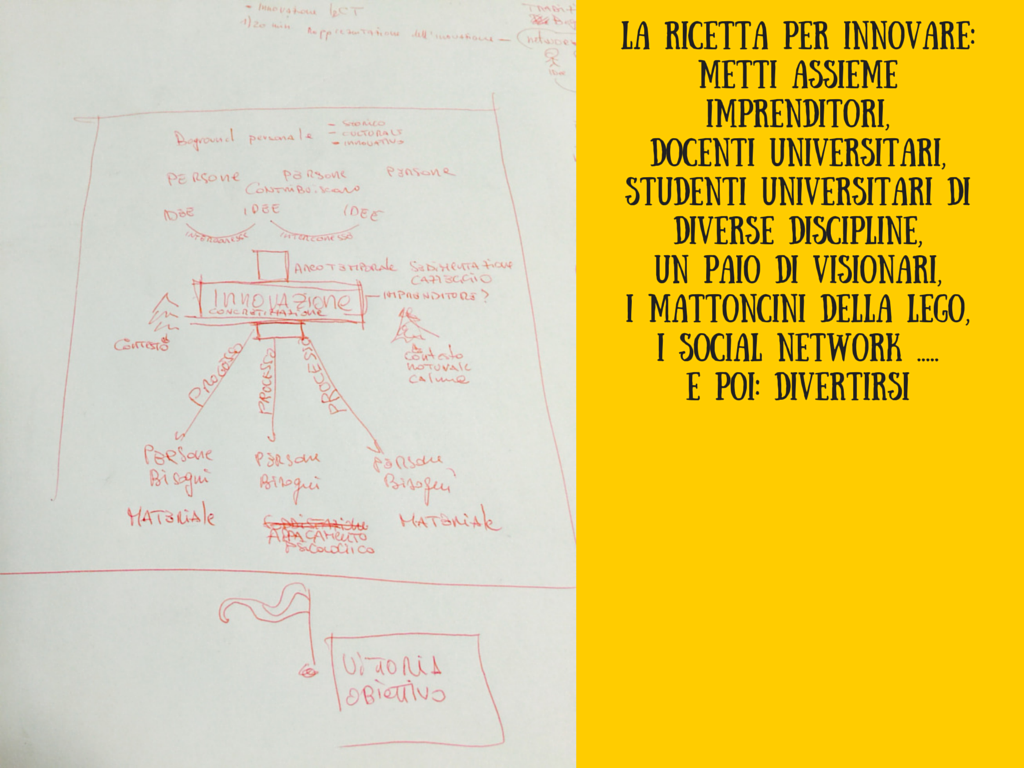 - Innovazione
1/20 min Rappresentazione dell'innovazione -
network
IDEE
Baground personale
- STORICO
- CULTURALE
- INNOVATIVO
PERSONE PERSONE PERSONE
CONTRIBUISCONO
IDEE IDEE IDEE
INTERCONESSE INTERCONESSO
ARCO TEMPORALE SEDIMENTAZIONE
INNOVAZIONE
CONCRETIZZAZIONE
IMPRENDITORE?
CONTESTO
contesto
naturale
PROCESSO
PROCESSO
PROCESSI
PERSONE PERSONE PERSONE
Bisogni Bisogni Bisogni
MATERIALE MATERIALE
APPAGAMENTO
PSICOLOGICO
VITTORIA
OBIETTIVO
LA RICETTA PER INNOVARE:
METTI ASSIEME
IMPRENDITORI,
DOCENTI UNIVERSITARI,
STUDENTI UNIVERSITARI DI
DIVERSE DISCIPLINE,
UN PAIO DI VISIONARI,
I MATTONCINI DELLA LEGO,
I SOCIAL NETWORK .....
E POI: DIVERTIRSI